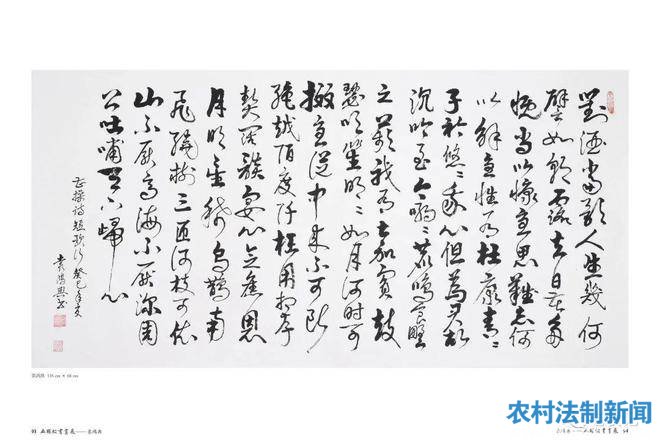 對酒當歌人生幾何
譬如朝露去日苦多
慨當以慷憂思難忘何
以解憂惟有杜康青〻
子衿悠〻我心但為君故
沉吟至今呦〻鹿鳴食野
之苹我有嘉賓鼓
瑟吹笙明〻如月何時可
掇憂從中來不可斷
絕越陌度阡枉用相存
契闊談宴心念舊恩
月明星稀烏鵲南
飛繞樹三匝何枝可依
山不厭高海不厭深周
公吐哺天下歸心
曹操詩短歌行 癸巳年夏
农村法制新闻